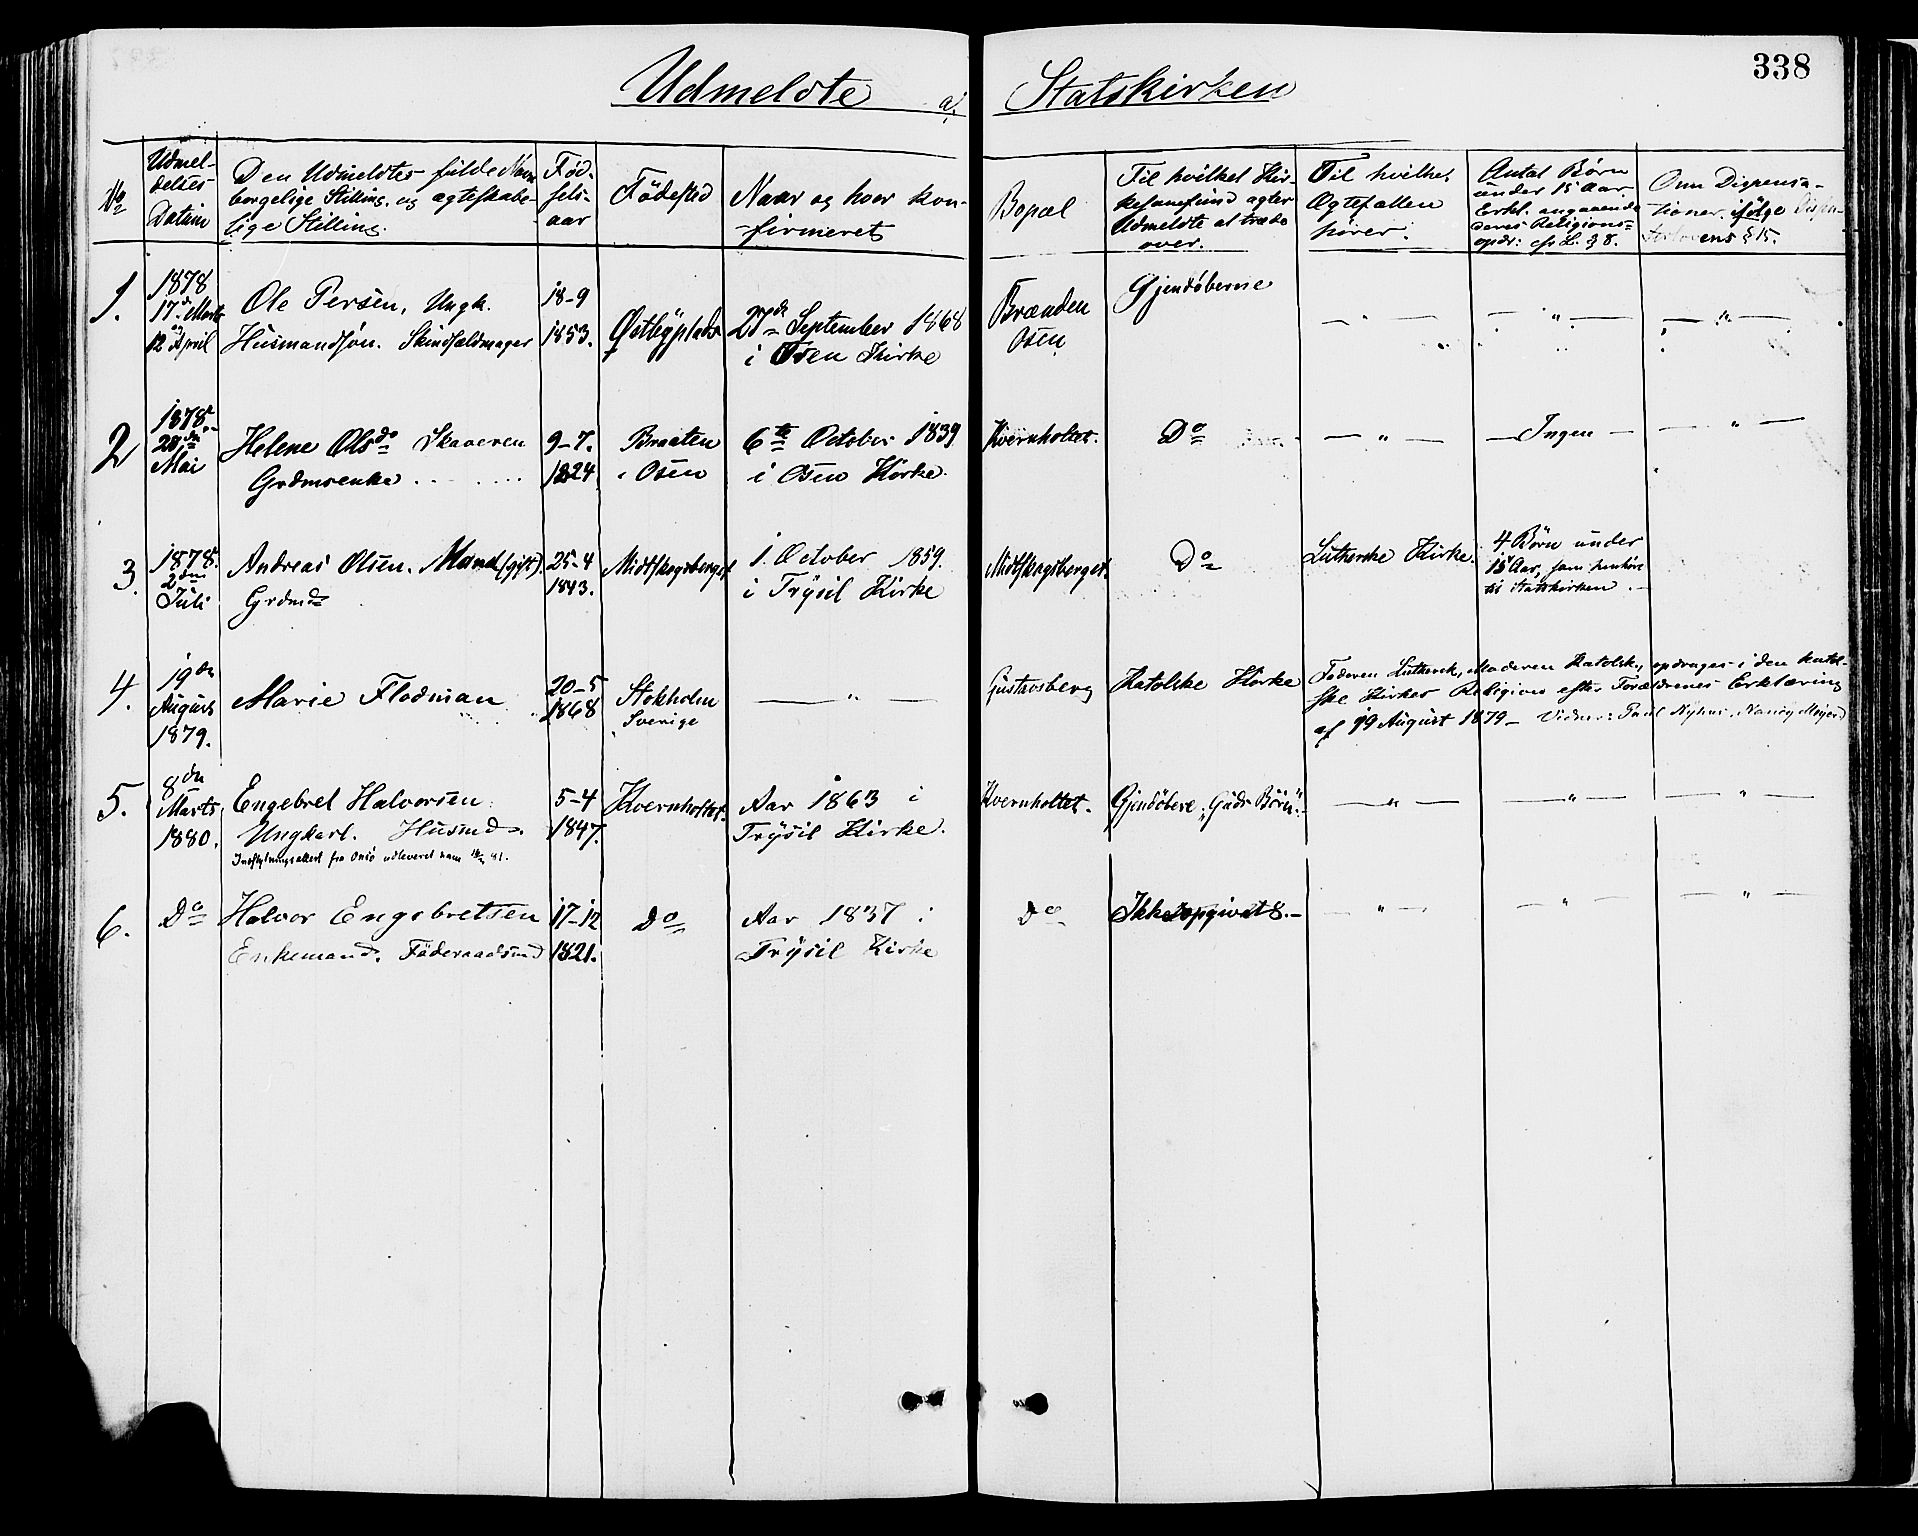 338
Udmeldte af Statskirken
No
Udmel-
delses
Datum
Den Udmeldtes fulde Navn
borgelige Stilling, og ægteskabe-
lige Stilling.
Fød-
sels-
aar
Födested
Naar og hvor kon-
firmeret
Bopæl
Til hvilket Kir-
kesamfund agter
Udmeldte at træde
over.
Til hvilke.
Ægtefællen
hører.
Antal Børn
under 15 Aar
Erkl. angaaende
deres Religions-
opdr: cfr L. § 8.
Om Dispensa-
tioner ifølge Dissen-
terlovens § 15.
1.
1878
17de Marts
og
12 April
Ole Persen, Ungk.
Husmandsøn. Skindfældmager
18-9
1853.
Østbÿplads
27de September 1868
i Osen Kirke
Brænden
Osen
Gjendöberne
— " —
— " —
— " —
2
1878
28de
Mai
Helene Olsdo Skaaeren
Grdmenke
9-7.
1824
Braaten
i Osen
6te October 1839
i Osen Kirke.
Kvernholtet.
Do
— " —
— Ingen —
— " —
3.
1878.
2den
Juli
Andreas Olsen. Mand (gift).
Grdmd
25-4
1843.
Midtskogsberget
1. October 1859.
i Trÿsil Kirke
Midtskogsberget.
Do
Lutherske Kirke.
4 Börn under
15 Aar, som henhöre
til Statskirken.
4.
19de
August
1879.
Marie Flodman
20-5
1868
Stokholm
Sverige
— " —
Gustavsberg
Katolske Kirke
Faderen Luthersk, Moderen Katolsk, opdrages i den kathol-
ske Kirkes Religion efter Forældrenes Erklæring
af 19 August 1879 — Vidner: Paul Nÿhus, Nancy Meyer
5.
8de
Marts
1880.
Engebret Halvorsen
Ungkarl. Husmd.
fra Onsö udleveret ham 81.
5-4
1847.
Kvernholtet.
Aar 1863 i
Trÿsil Kirke.
Kvernholtet.
Gjendöbere „Guds Börn".
— " —
— " —
— " —
6.
Do
Halvor Engebretsen
Enkemand. Föderaadsmd
17-12
1821.
Do
Aar 1837 i
Trÿsil Kirke
Do
Ikke opgivet.
— " —
— " —
— " —